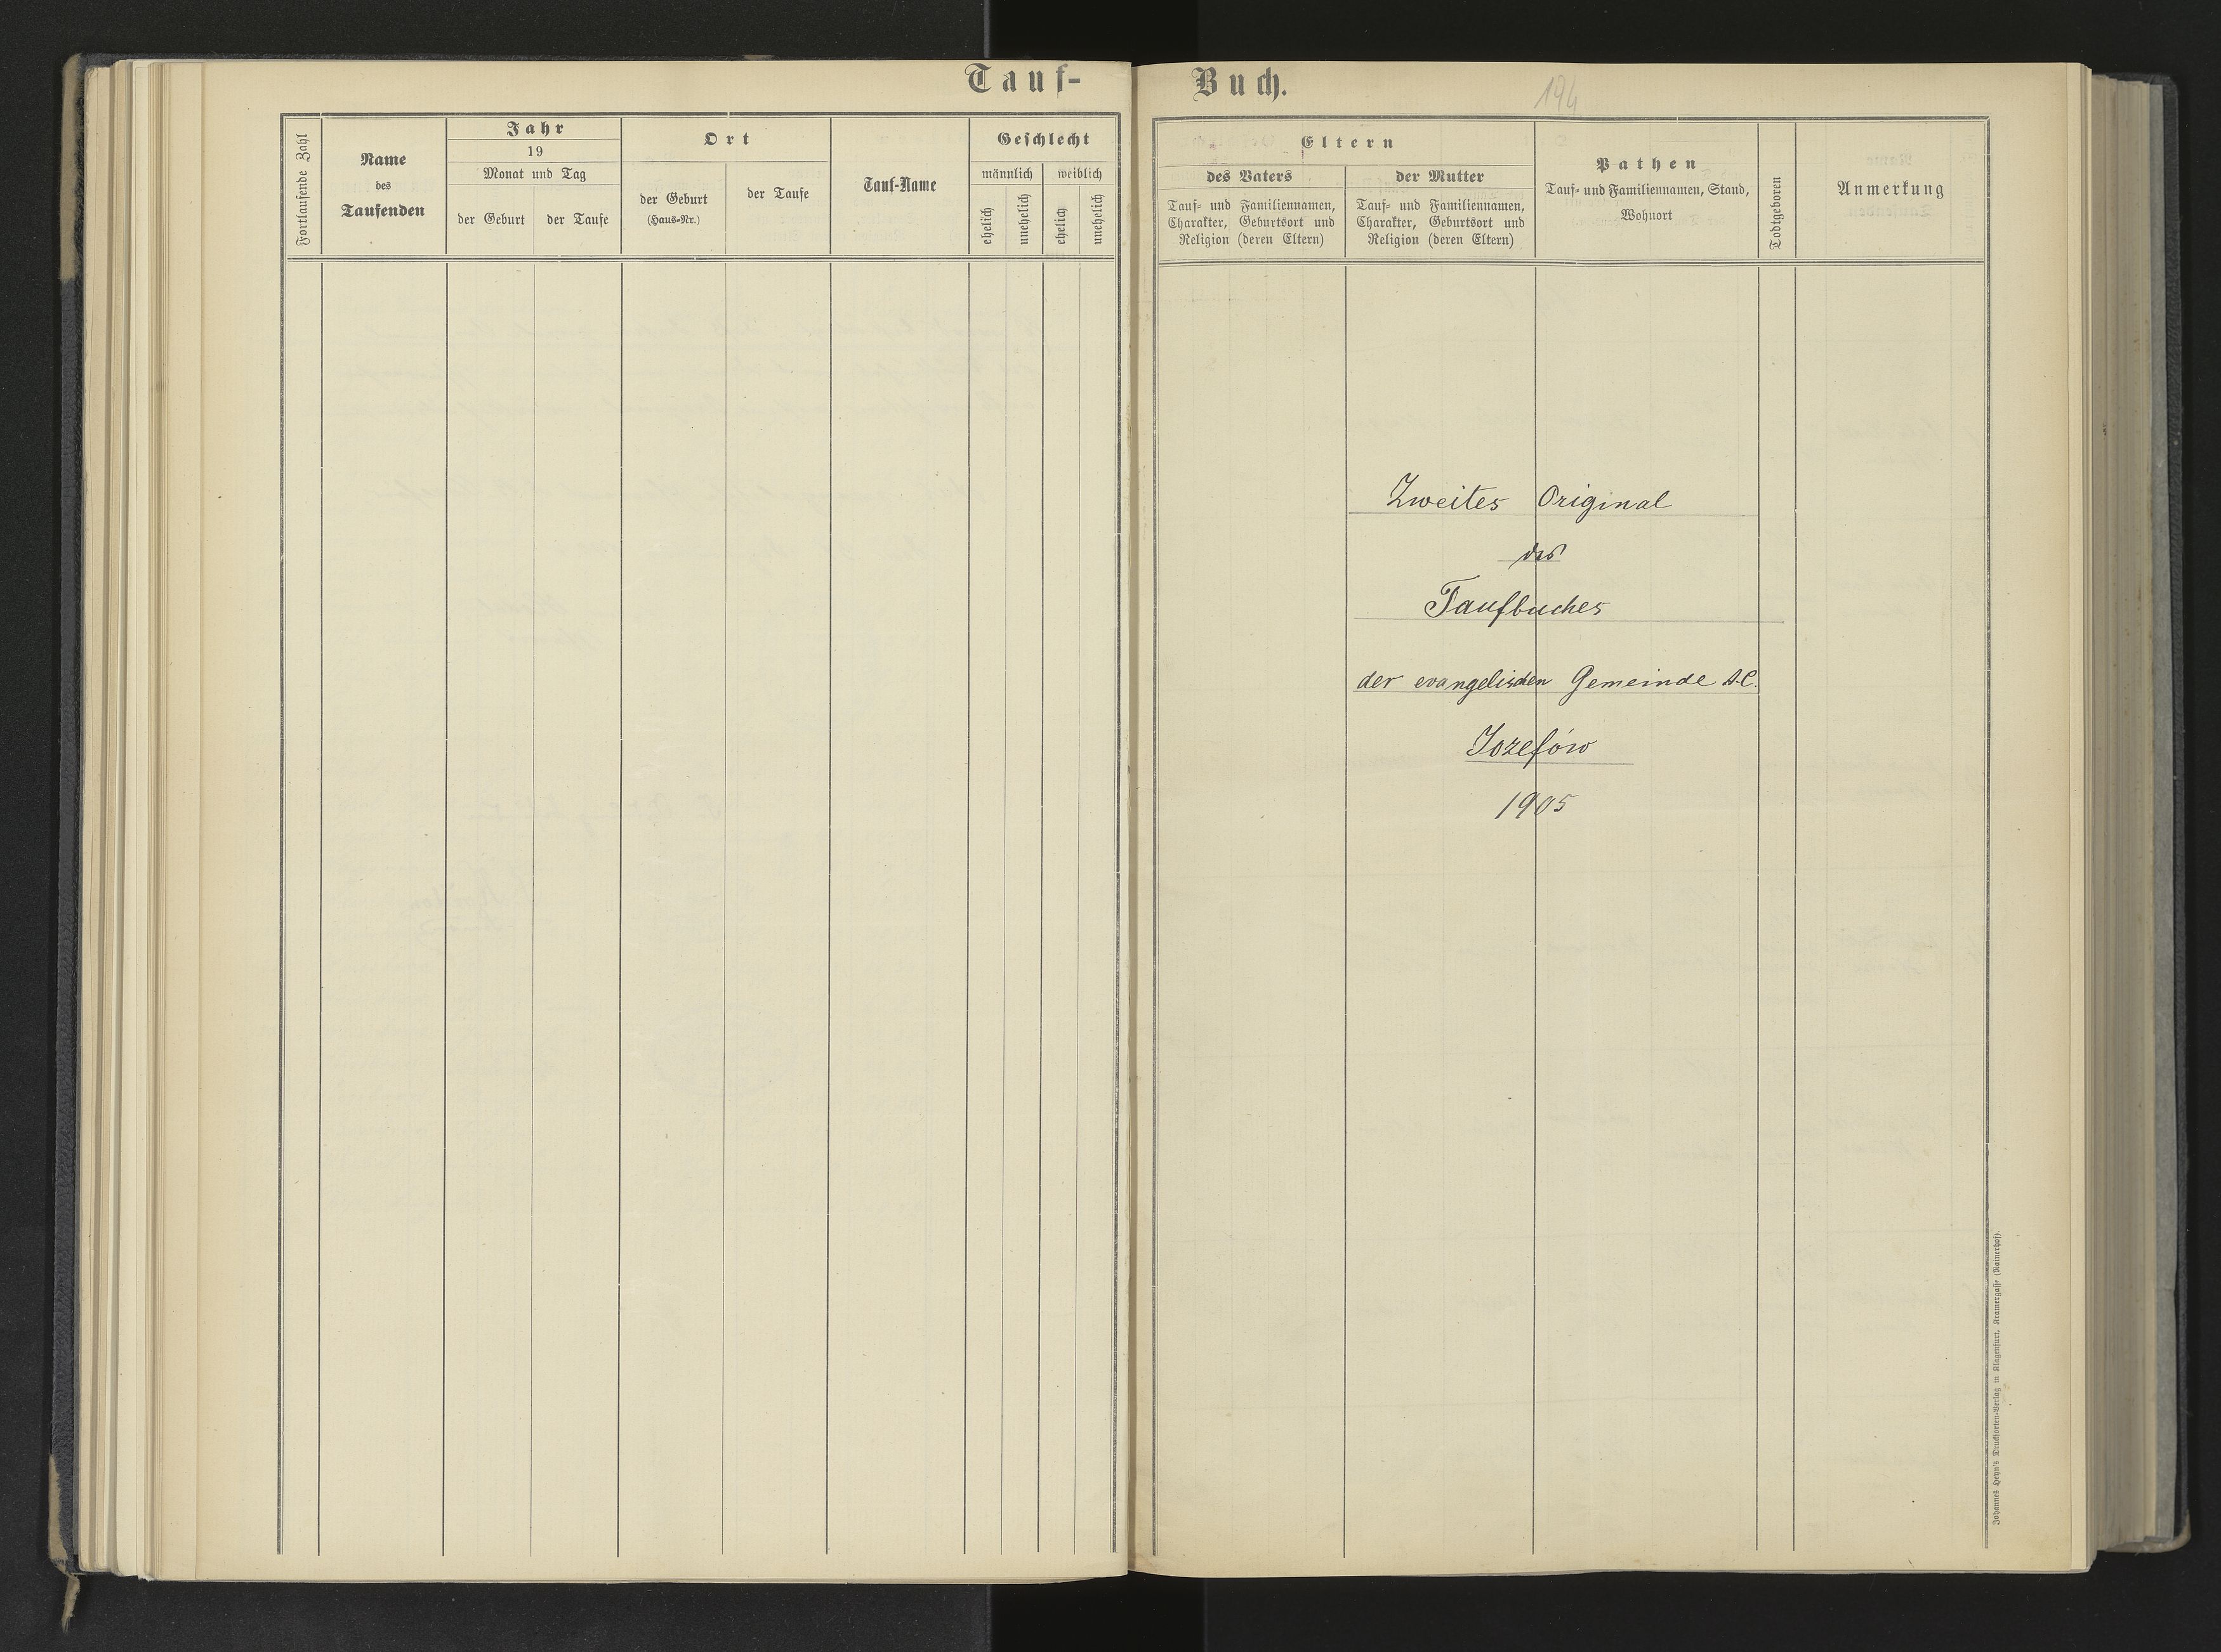 Tauf-
Fortlaufende Zahl
Name
des
Taufenden
Jahr
19
Monat und Tag
der Geburt
der Taufe
Ort
der Geburt
(Haus-Nr.)
der Taufe
Tauf-Name
Geschlecht
männlich
weiblich
ehelich
unehelich
ehelich
unehelich
Buch.
194
Eltern
des Vaters
Tauf- und Familiennamen,
Charakter, Geburtsort und
Religion (deren Eltern)
der Mutter
Tauf- und Familiennamen,
Charakter, Geburtsort und
Religion (deren Eltern)
Pathen
Tauf- und Familiennamen, Stand,
Wohnort
Todtgeboren
Anmerkung
Zweites Original
des
Taufbuches
der evangelischen Gemeinde A.C.
Jozefów
1905
Johannes Heyn's Drucksorten-Verlag in Klagenfurt, Kramergasse (Rainerhof).